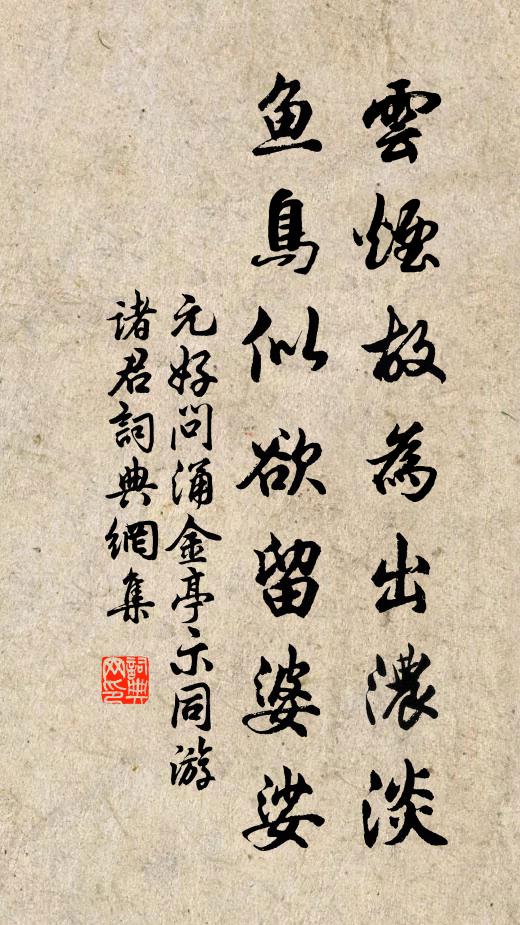 雲煙故為出濃淡
鱼鳥似欲留婆娑
元好问涌金亭示同游
诸君詞典網集
詞典网印